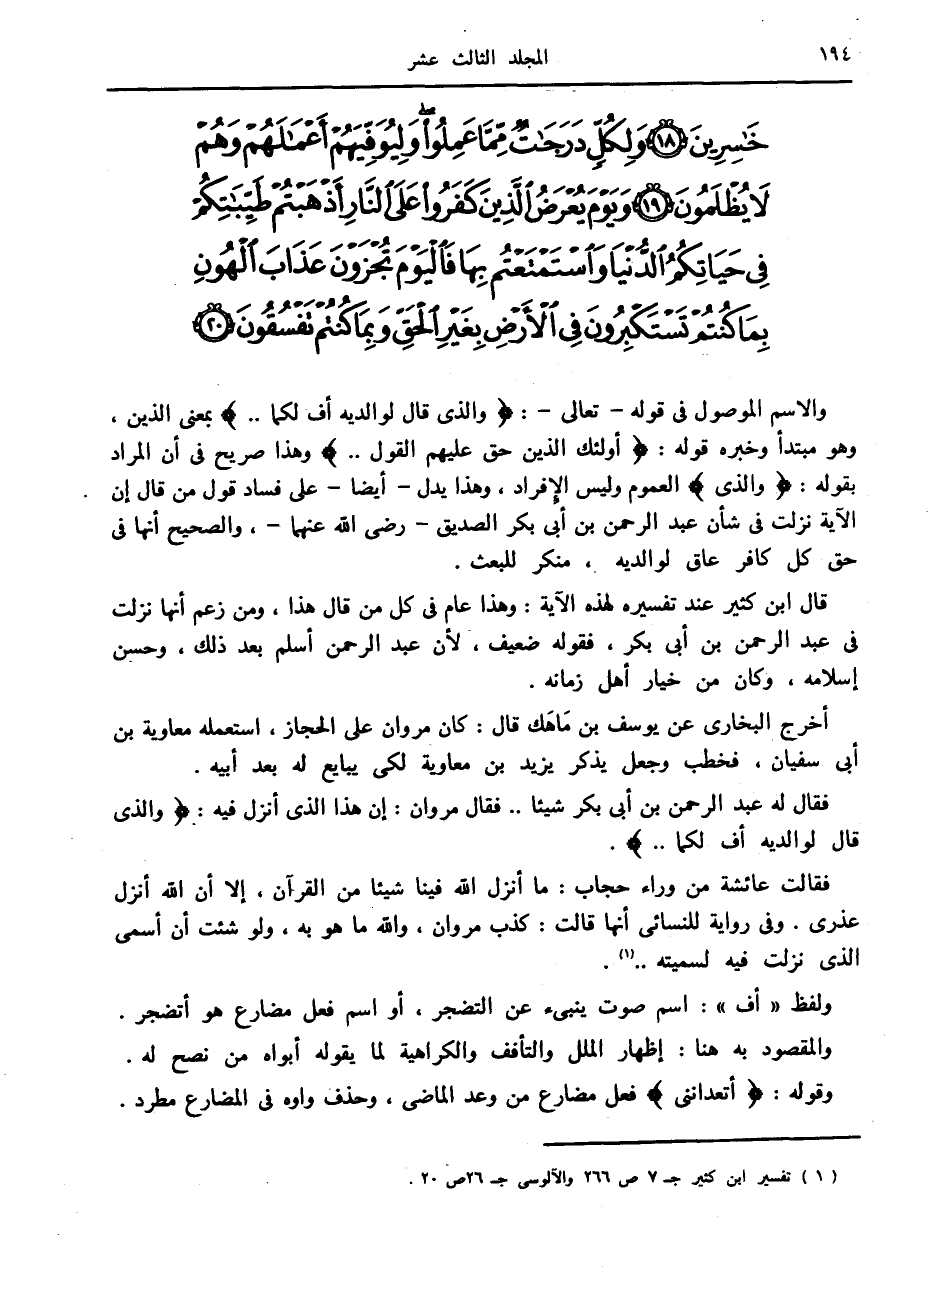 ١٩٤
المجلد الثالث عشر
خَٰسِرِينَ ﴿١٨﴾ وَلِكُلٍّ دَرَجَٰتٌ مِّمَّا عَمِلُوا۟ ۖ وَلِيُوَفِّيَهُمْ أَعْمَٰلَهُمْ وَهُمْ
لَا يُظْلَمُونَ ﴿١٩﴾ وَيَوْمَ يُعْرَضُ ٱلَّذِينَ كَفَرُوا۟ عَلَى ٱلنَّارِ أَذْهَبْتُمْ طَيِّبَٰتِكُمْ
فِى حَيَاتِكُمُ ٱلدُّنْيَا وَٱسْتَمْتَعْتُم بِهَا فَٱلْيَوْمَ تُجْزَوْنَ عَذَابَ ٱلْهُونِ
بِمَا كُنتُمْ تَسْتَكْبِرُونَ فِى ٱلْأَرْضِ بِغَيْرِ ٱلْحَقِّ وَبِمَا كُنتُمْ تَفْسُقُونَ ﴿٢٠﴾
والاسم الموصول فى قوله – تعالى – : ﴿ والذى قال لوالديه أف لكما .. ﴾ بمعنى الذين ،
وهو مبتدأ وخبره قوله : ﴿ أولئك الذين حق عليهم القول .. ﴾ وهذا صريح فى أن المراد
بقوله : ﴿ والذى ﴾ العموم وليس الإفراد ، وهذا يدل – أيضا – على فساد قول من قال إن
الآية نزلت فى شأن عبد الرحمن بن أبى بكر الصديق – رضى الله عنهما – ، والصحيح أنها فى
حق كل كافر عاق لوالديه ، منكر للبعث .
قال ابن كثير عند تفسيره لهذه الآية : وهذا عام فى كل من قال هذا ، ومن زعم أنها نزلت
فى عبد الرحمن بن أبى بكر ، فقوله ضعيف ، لأن عبد الرحمن أسلم بعد ذلك ، وحسن
إسلامه ، وكان من خيار أهل زمانه .
أخرج البخارى عن يوسف بن مَاهَك قال : كان مروان على الحجاز ، استعمله معاوية بن
أبى سفيان ، فخطب وجعل يذكر يزيد بن معاوية لكى يبايع له بعد أبيه .
فقال له عبد الرحمن بن أبى بكر شيئا .. فقال مروان : إن هذا الذى أنزل فيه : ﴿ والذى
قال لوالديه أف لكما .. ﴾ .
فقالت عائشة من وراء حجاب : ما أنزل الله فينا شيئا من القرآن ، إلا أن الله أنزل
عذرى . وفى رواية للنسائى أنها قالت : كذب مروان ، والله ما هو به ، ولو شئت أن أسمى
الذى نزلت فيه لسميته ..(١) .
ولفظ « أف » : اسم صوت ينبىء عن التضجر ، أو اسم فعل مضارع هو أتضجر .
والمقصود به هنا : إظهار الملل والتأفف والكراهية لما يقوله أبواه من نصح له .
وقوله : ﴿ أتعداننى ﴾ فعل مضارع من وعد الماضى ، وحذف واوه فى المضارع مطرد .
( ١ ) تفسير ابن كثير جـ ٧ ص ٢٦٦ والآلوسى جـ ٢٦ص ٢٠ .